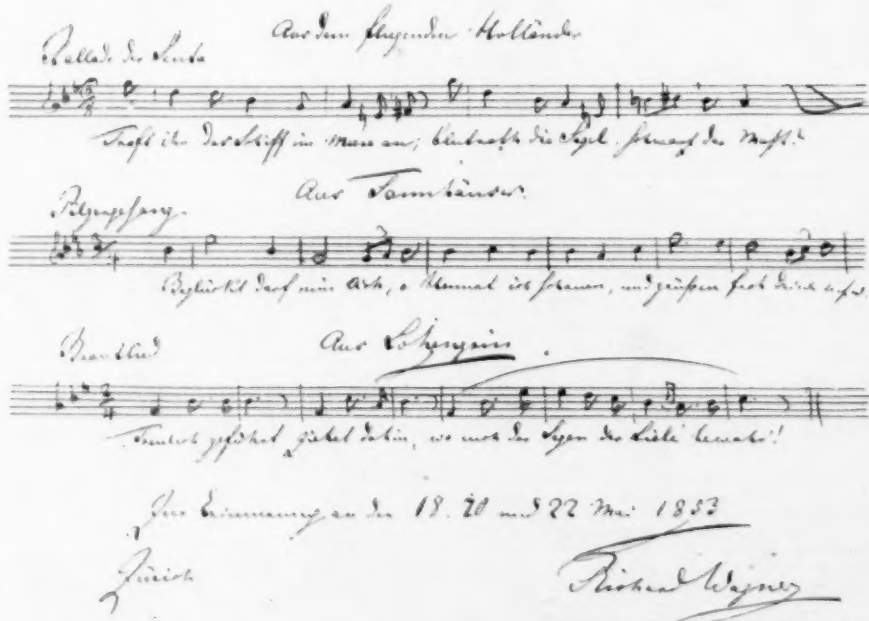 Aus dem fliegenden Holländer
Ballade der Senta
Trafft ihr das Schiff im Meere an, blutroth die Segel, schwarz der Mast?
Aus Tannhäuser.
Pilgergesang.
Beglückt darf nun dich, o Heimat ich schauen, und grüßen froh deine
Aus Lohengrin.
Brautlied
Treulich geführt ziehet dahin, wo euch der Segen der Liebe bewahr'!
Zur Erinnerung an den 18. 20 und 22 Mai 1853
Zürich
Richard Wagner